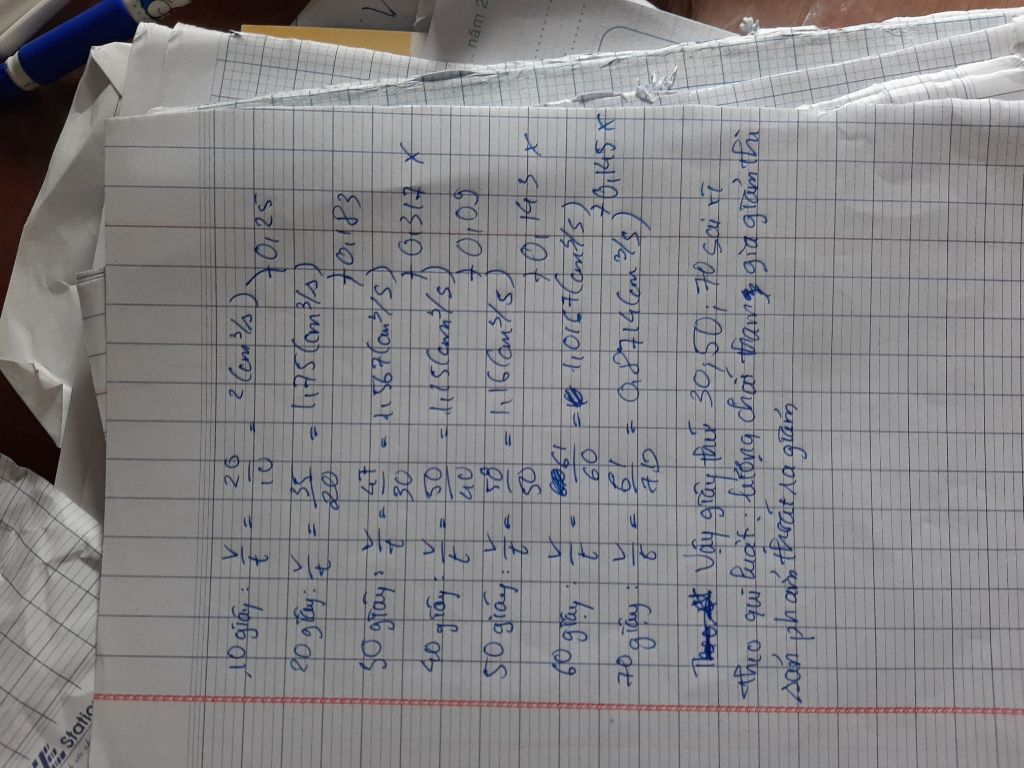 10 giây : V/t = 20/10 = 2 (cm³/s)
) 0,25
20 giây : V/t = 35/20 = 1,75 (cm³/s)
) 0,183
30 giây : V/t = 47/30 = 1,567 (cm³/s)
) 0,317 x
40 giây : V/t = 50/40 = 1,25 (cm³/s)
) 0,09
50 giây : V/t = 58/50 = 1,16 (cm³/s)
) 0,143 x
60 giây : V/t = 61/60 = 1,0167 (cm³/s)
) 0,145 x
70 giây : V/t = 61/70 = 0,8714 (cm³/s)
Vậy giây thứ 30, 50; 70 sai vì
theo qui luật : lượng chất tham gia giảm thì
sản phẩm thoát ra giảm
năm 2
Statio